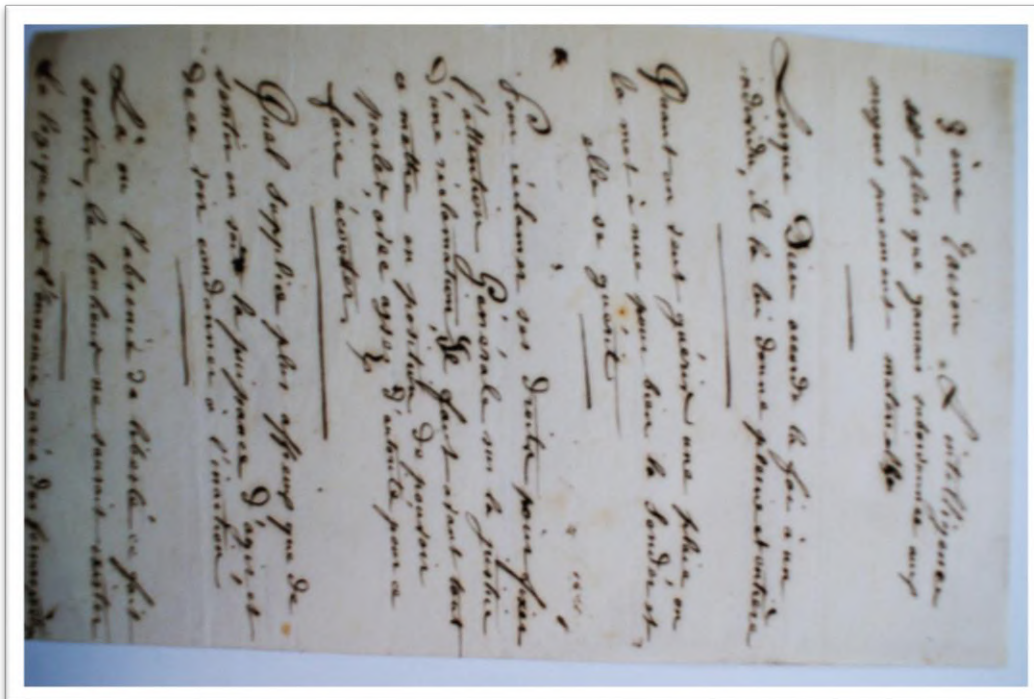 Raison & l'intelligence
plus que jamais subordonnée aux
organes purement matérielle
Lorsque Dieu accorde la foi à un
individu, il la lui donne pleine et entière
Quand on veut guérir une plaie on
la met à nue pour bien la sonder et
elle se guérit
Pour réclamer ses droits pour fixer
l'attention Générale sur la justice
d'une réclamation, Il faut avant tout
ce mettre en position de pouvoir
parler avec assez d'autorité pour ce
faire écouter,
Quel supplice plus affreux que de
sentir en soi la puissance d'agir et
de ce voir condamner à l'inaction
Là ou l'absence de ce fait
sentir, le bonheur ne saurait exister
La logique est l'ennemie jurée des femmes